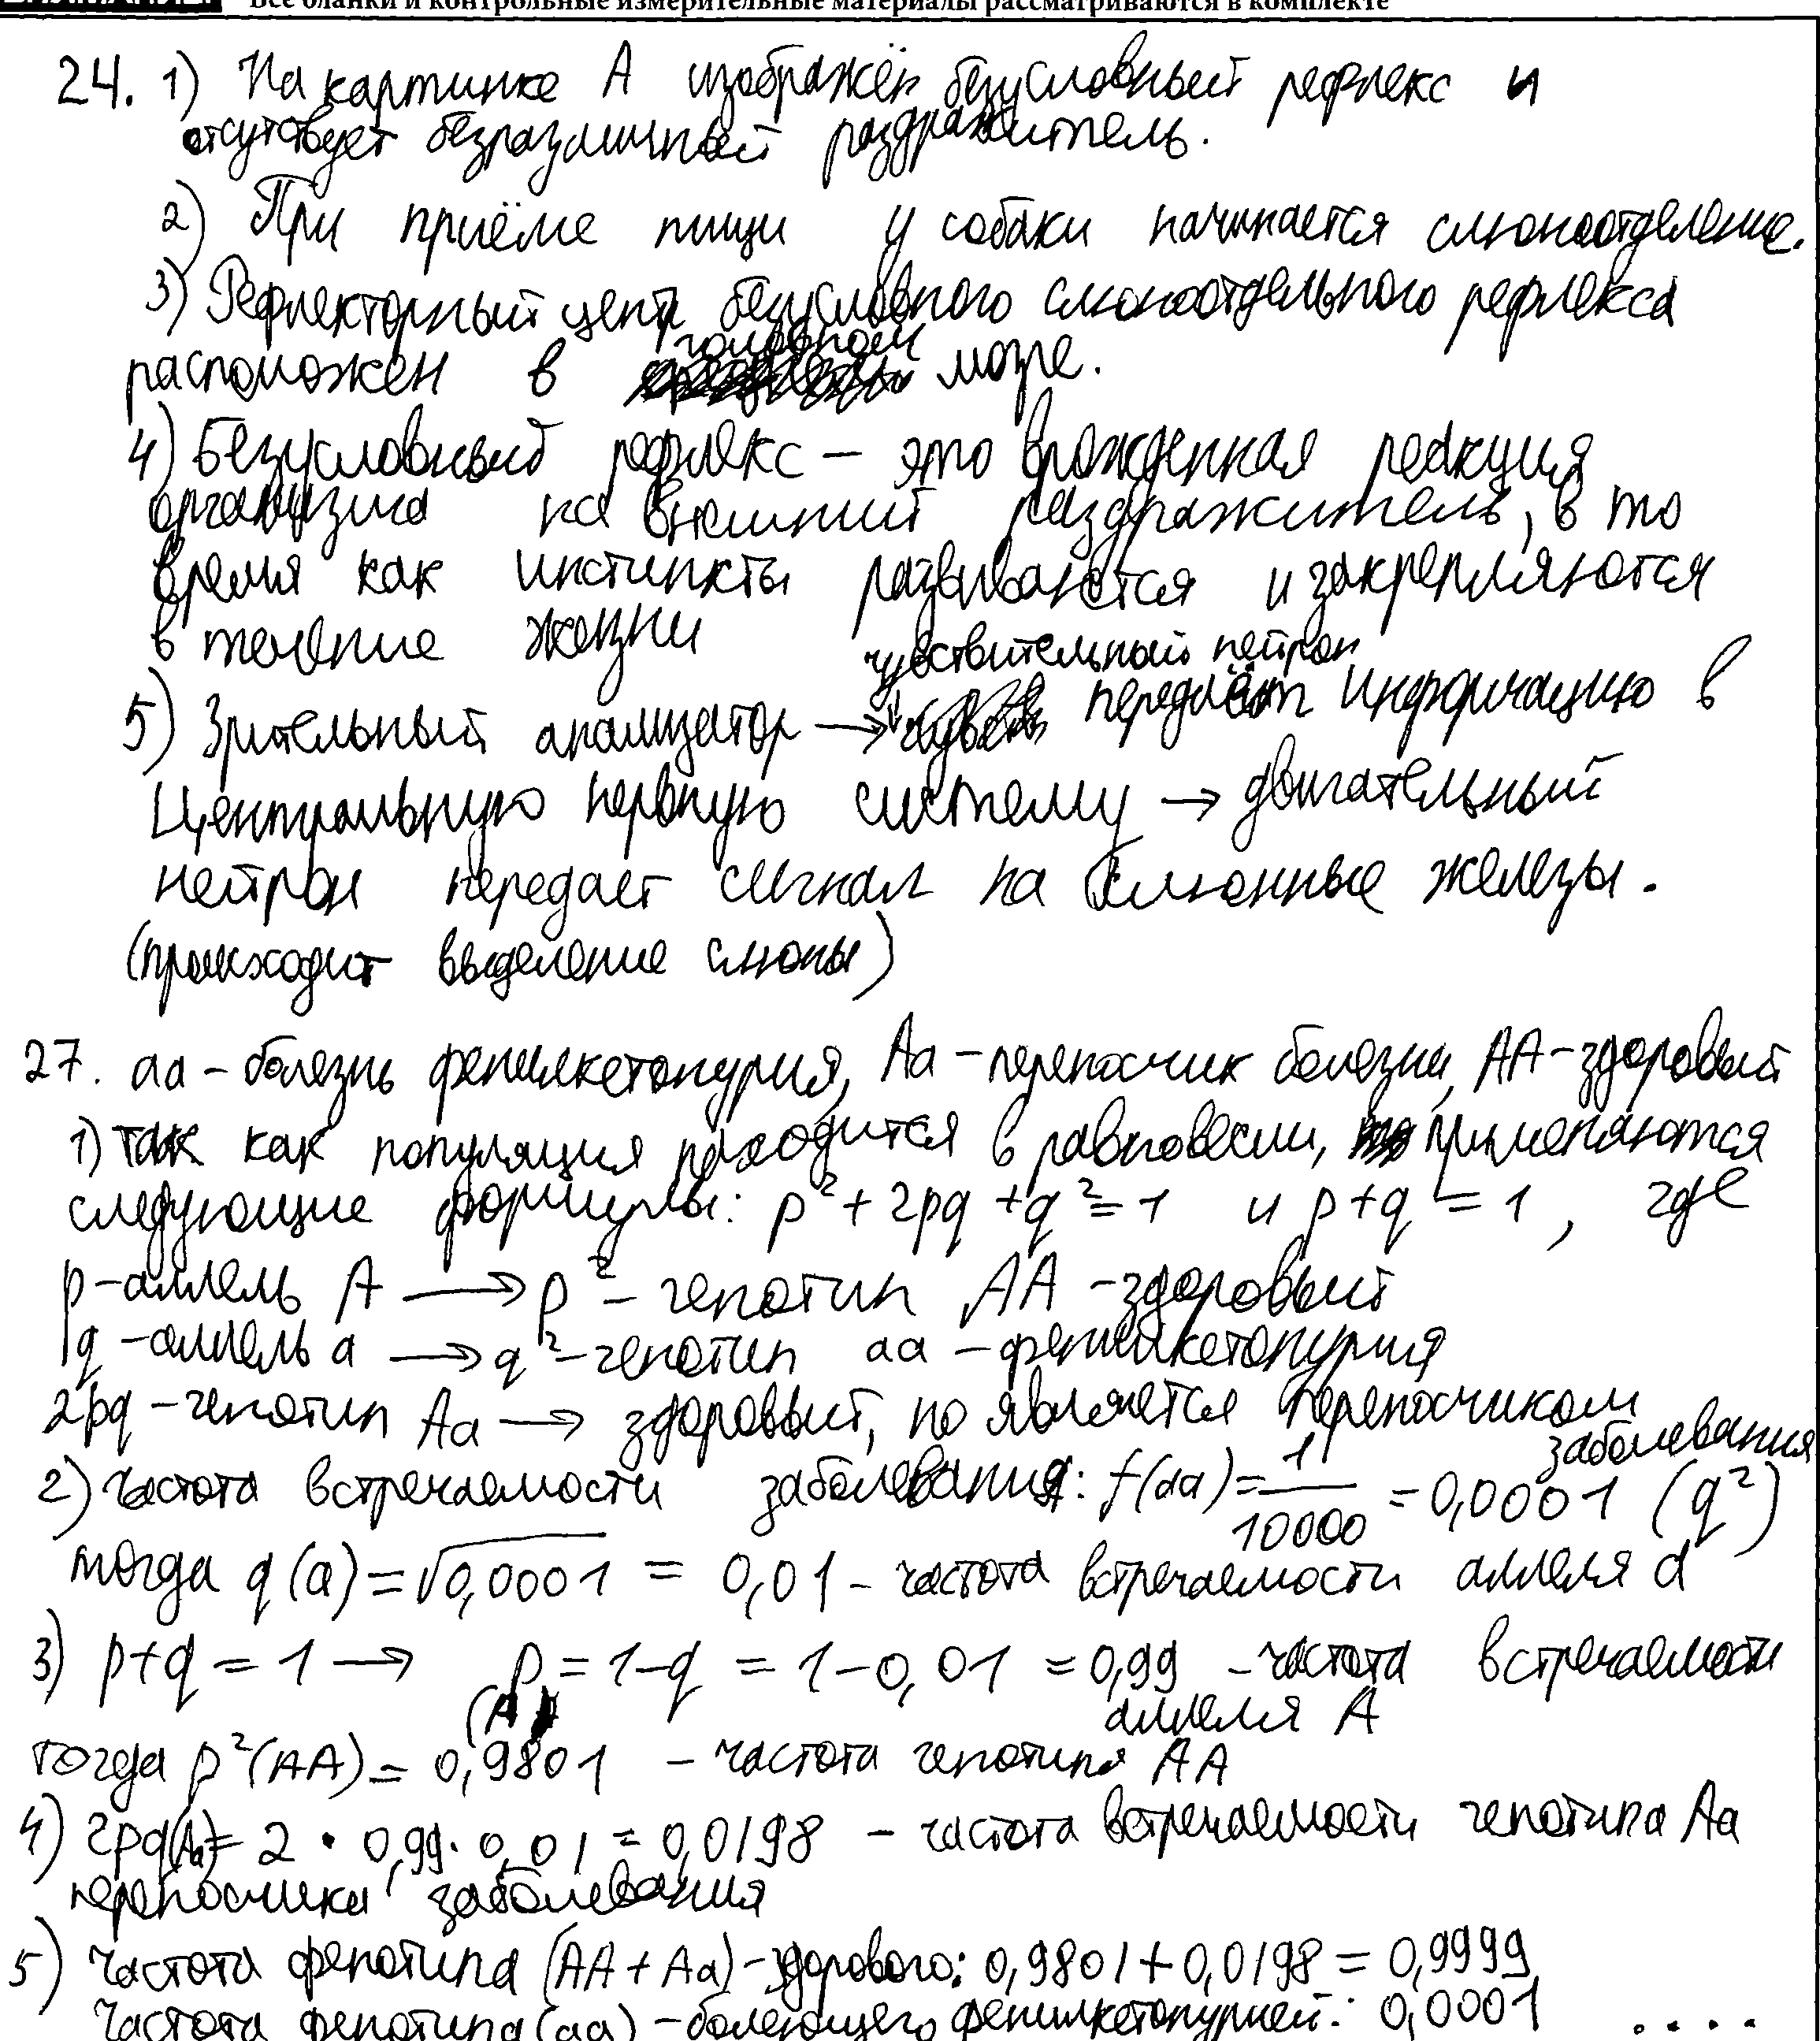 Все бланки и контрольные измерительные материалы рассматриваются в комплекте
24. 1) На картинке А изображён безусловный рефлекс и
отсутсвует безразличный раздражитель.
2) При приёме пищи у собаки начинается слюноотделение.
3) Рефлекторный центр безусловного слюноотдельного рефлекса
расположен в головном мозге.
4) Безусловный рефлекс – это врожденная реакция
организма на внешний раздражитель, в то
время как инстинкты развиваются и закрепляются
в течение жизни
5) Зрительный анализатор → чувствительный нейрон передаёт информацию в
Центральную нервную систему → двигательный
нейрон передает сигнал на слюнные железы.
(происходит выделение слюны)
27. аа – болезнь фенилкетонурия, Аа – переносчик болезни, АА – здоровый
1) так как популяция находится в равновесии, применяются
следующие формулы: p² + 2pq + q² = 1 и p + q = 1, где
p – аллель А → p² – генотип АА – здоровый
q – аллель а → q² – генотип аа – фенилкетонурия
2pq – генотип Аа → здоровый, но является переносчиком
заболевания
2) частота встречаемости заболевания: f(аа) = 1/10000 = 0,0001 (q²)
тогда q(а) = √0,0001 = 0,01 – частота встречаемости аллеля а
3) p+q = 1 → p(А) = 1–q = 1–0,01 = 0,99 – частота встречаемости
аллеля А
тогда p²(АА) = 0,9801 – частота генотипа АА
4) 2pq(Аа) = 2 · 0,99 · 0,01 = 0,0198 – частота встречаемости генотипа Аа
переносчика заболевания
5) Частота фенотипа (АА + Аа) – здорового: 0,9801 + 0,0198 = 0,9999
Частота фенотипа (аа) – болеющего фенилкетонурией: 0,0001 ....